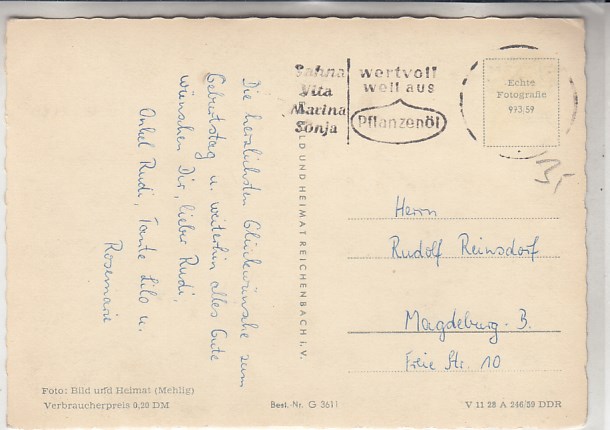 Sahna
Vita
Marina
Sonja
wertvoll
weil aus
Pflanzenöl
Echte
Fotografie
993/59
Die herzlichsten Glückwünsche zum
Geburtstag u. weiterhin alles Gute
wünschen Dir, lieber Rudi,
Onkel Rudi, Tante Lilo u.
Rosemarie
BILD UND HEIMAT REICHENBACH I. V.
Herrn
Rudolf Reinsdorf
Magdeburg - B.
Freie Str. 10
Foto: Bild und Heimat (Mehlig)
Verbraucherpreis 0,20 DM
Best.-Nr. G 3611
V 11 28 A 246/59 DDR